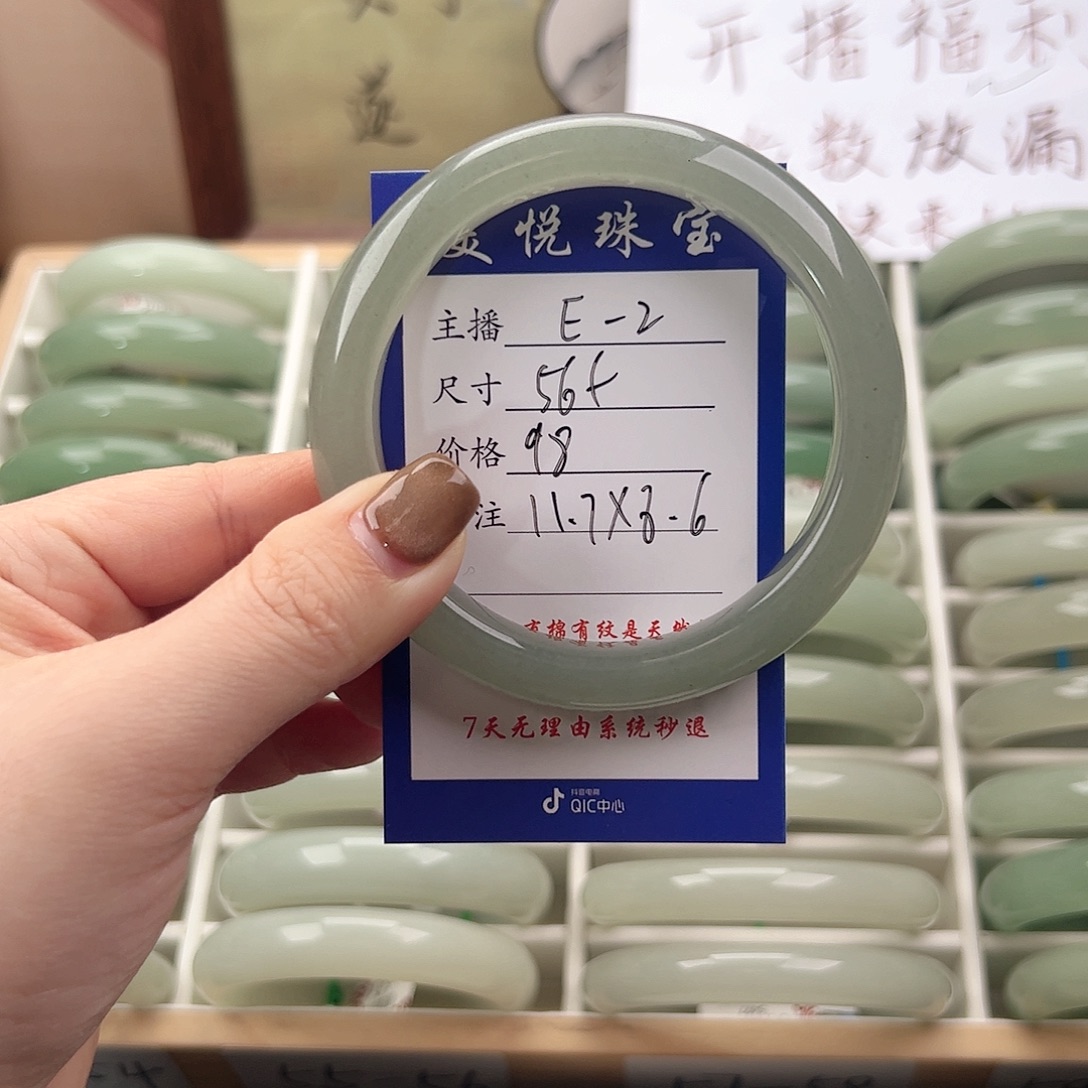 开播福利
数放漏
悦珠宝
主播 E-2
尺寸 56+
价格 98
注 11.7X8.6
有棉有纹是天然
7天无理由系统秒退
抖音电商
QIC中心